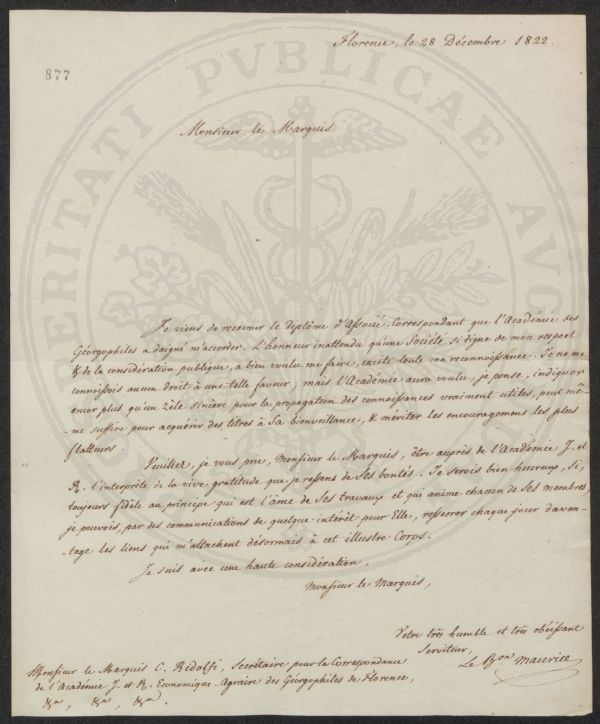 Florence, le 28 Décembre 1822.
877
Monsieur le Marquis
Je viens de recevoir le diplôme d'Associé-Correspondant que l'Académie des
Géorgophiles a daigné m'accorder. L'honneur inattendu qu'une Société si digne de mon respect
& de la considération publique, a bien voulu me faire, excite toute ma reconnoissance. Je ne me
connoissois aucun droit à une telle faveur; mais l'Académie aura voulu, je pense, indiquer
encor plus qu'un zèle sincère pour la propagation des connoissances vraiment utiles, peut mê-
-me suffire pour acquérir des titres à Sa bienveillance, & mériter les encouragemens les plus
flatteurs.
Veuillez, je vous prie, Monsieur le Marquis, être auprès de l'Académie I. et
R. l'interprète de la vive gratitude que je ressens de Ses bontés. Je serois bien heureux, si,
toujours fidèle au principe qui est l'âme de Ses travaux et qui anime chacun de Ses membres,
je pouvois, par des communications de quelque intérêt pour Elle, resserrer chaque jour davan-
-tage les liens qui m'attachent désormais à cet illustre Corps.
Je suis avec une haute considération,
Monsieur le Marquis,
Votre très humble et très obéissant
Serviteur,
Le Bon Maurice
Monsieur le Marquis C. Ridolfi, Secrétaire pour la Correspondance
de l'Académie I. et R. Economique-Agraire des Géorgophiles de Florence,
&a, &a, &a.
PROSPERITATI PVBLICAE AVG